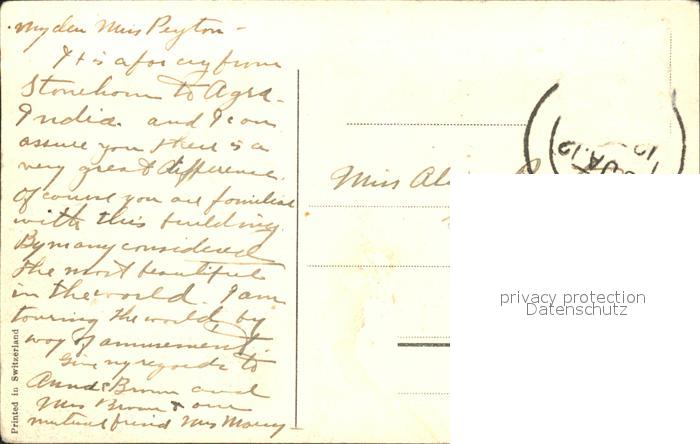 My dear Miss Peyton -
It is a far cry from
Stonehom to Agra -
India. and I can
assure you there is a
very great difference.
Of course you are familiar
with this building.
By many considered
the most beautiful
in the world. I am
touring the world by
way of amusement.
Give my regards to
Brown and
Mrs Brown & our
mutual friend Mrs
Miss
privacy protection
Datenschutz
Printed in Switzerland